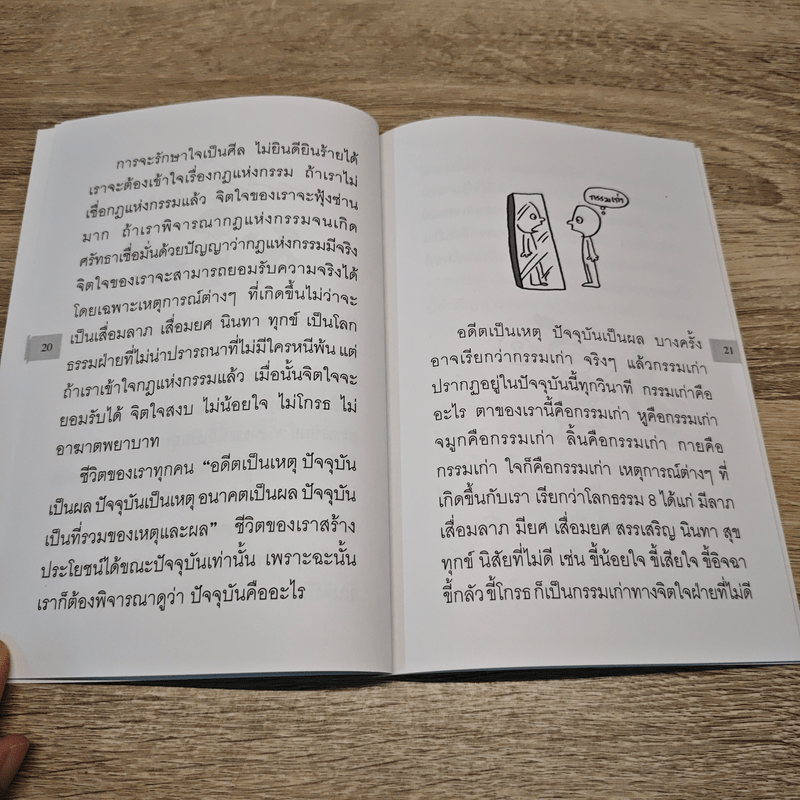 การจะรักษาใจเป็นศีล ไม่ยินดียินร้ายได้
เราจะต้องเข้าใจเรื่องกฎแห่งกรรม ถ้าเราไม่
เชื่อกฎแห่งกรรมแล้ว จิตใจของเราจะฟุ้งซ่าน
มาก ถ้าเราพิจารณากฎแห่งกรรมจนเกิด
ศรัทธาเชื่อมั่นด้วยปัญญาว่ากฎแห่งกรรมมีจริง
จิตใจของเราจะสามารถยอมรับความจริงได้
โดยเฉพาะเหตุการณ์ต่างๆ ที่เกิดขึ้นไม่ว่าจะ
เป็นเสื่อมลาภ เสื่อมยศ นินทา ทุกข์ เป็นโลก
ธรรมฝ่ายที่ไม่น่าปรารถนาที่ไม่มีใครหนีพ้น แต่
ถ้าเราเข้าใจกฎแห่งกรรมแล้ว เมื่อนั้นจิตใจจะ
ยอมรับได้ จิตใจสงบ ไม่น้อยใจ ไม่โกรธ ไม่
อาฆาตพยาบาท
ชีวิตของเราทุกคน “อดีตเป็นเหตุ ปัจจุบัน
เป็นผล ปัจจุบันเป็นเหตุ อนาคตเป็นผล ปัจจุบัน
เป็นที่รวมของเหตุและผล” ชีวิตของเราสร้าง
ประโยชน์ได้ขณะปัจจุบันเท่านั้น เพราะฉะนั้น
เราก็ต้องพิจารณาดูว่า ปัจจุบันคืออะไร
20
กรรมเก่า
อดีตเป็นเหตุ ปัจจุบันเป็นผล บางครั้ง
อาจเรียกว่ากรรมเก่า จริงๆ แล้วกรรมเก่า
ปรากฏอยู่ในปัจจุบันนี้ทุกวินาที กรรมเก่าคือ
อะไร ตาของเรานี้คือกรรมเก่า หูคือกรรมเก่า
จมูกคือกรรมเก่า ลิ้นคือกรรมเก่า กายคือ
กรรมเก่า ใจก็คือกรรมเก่า เหตุการณ์ต่างๆ ที่
เกิดขึ้นกับเรา เรียกว่าโลกธรรม 8 ได้แก่ มีลาภ
เสื่อมลาภ มียศ เสื่อมยศ สรรเสริญ นินทา สุข
ทุกข์ นิสัยที่ไม่ดี เช่น ขี้น้อยใจ ขี้เสียใจ ขี้อิจฉา
ขี้กลัว ขี้โกรธ ก็เป็นกรรมเก่าทางจิตใจฝ่ายที่ไม่ดี
21